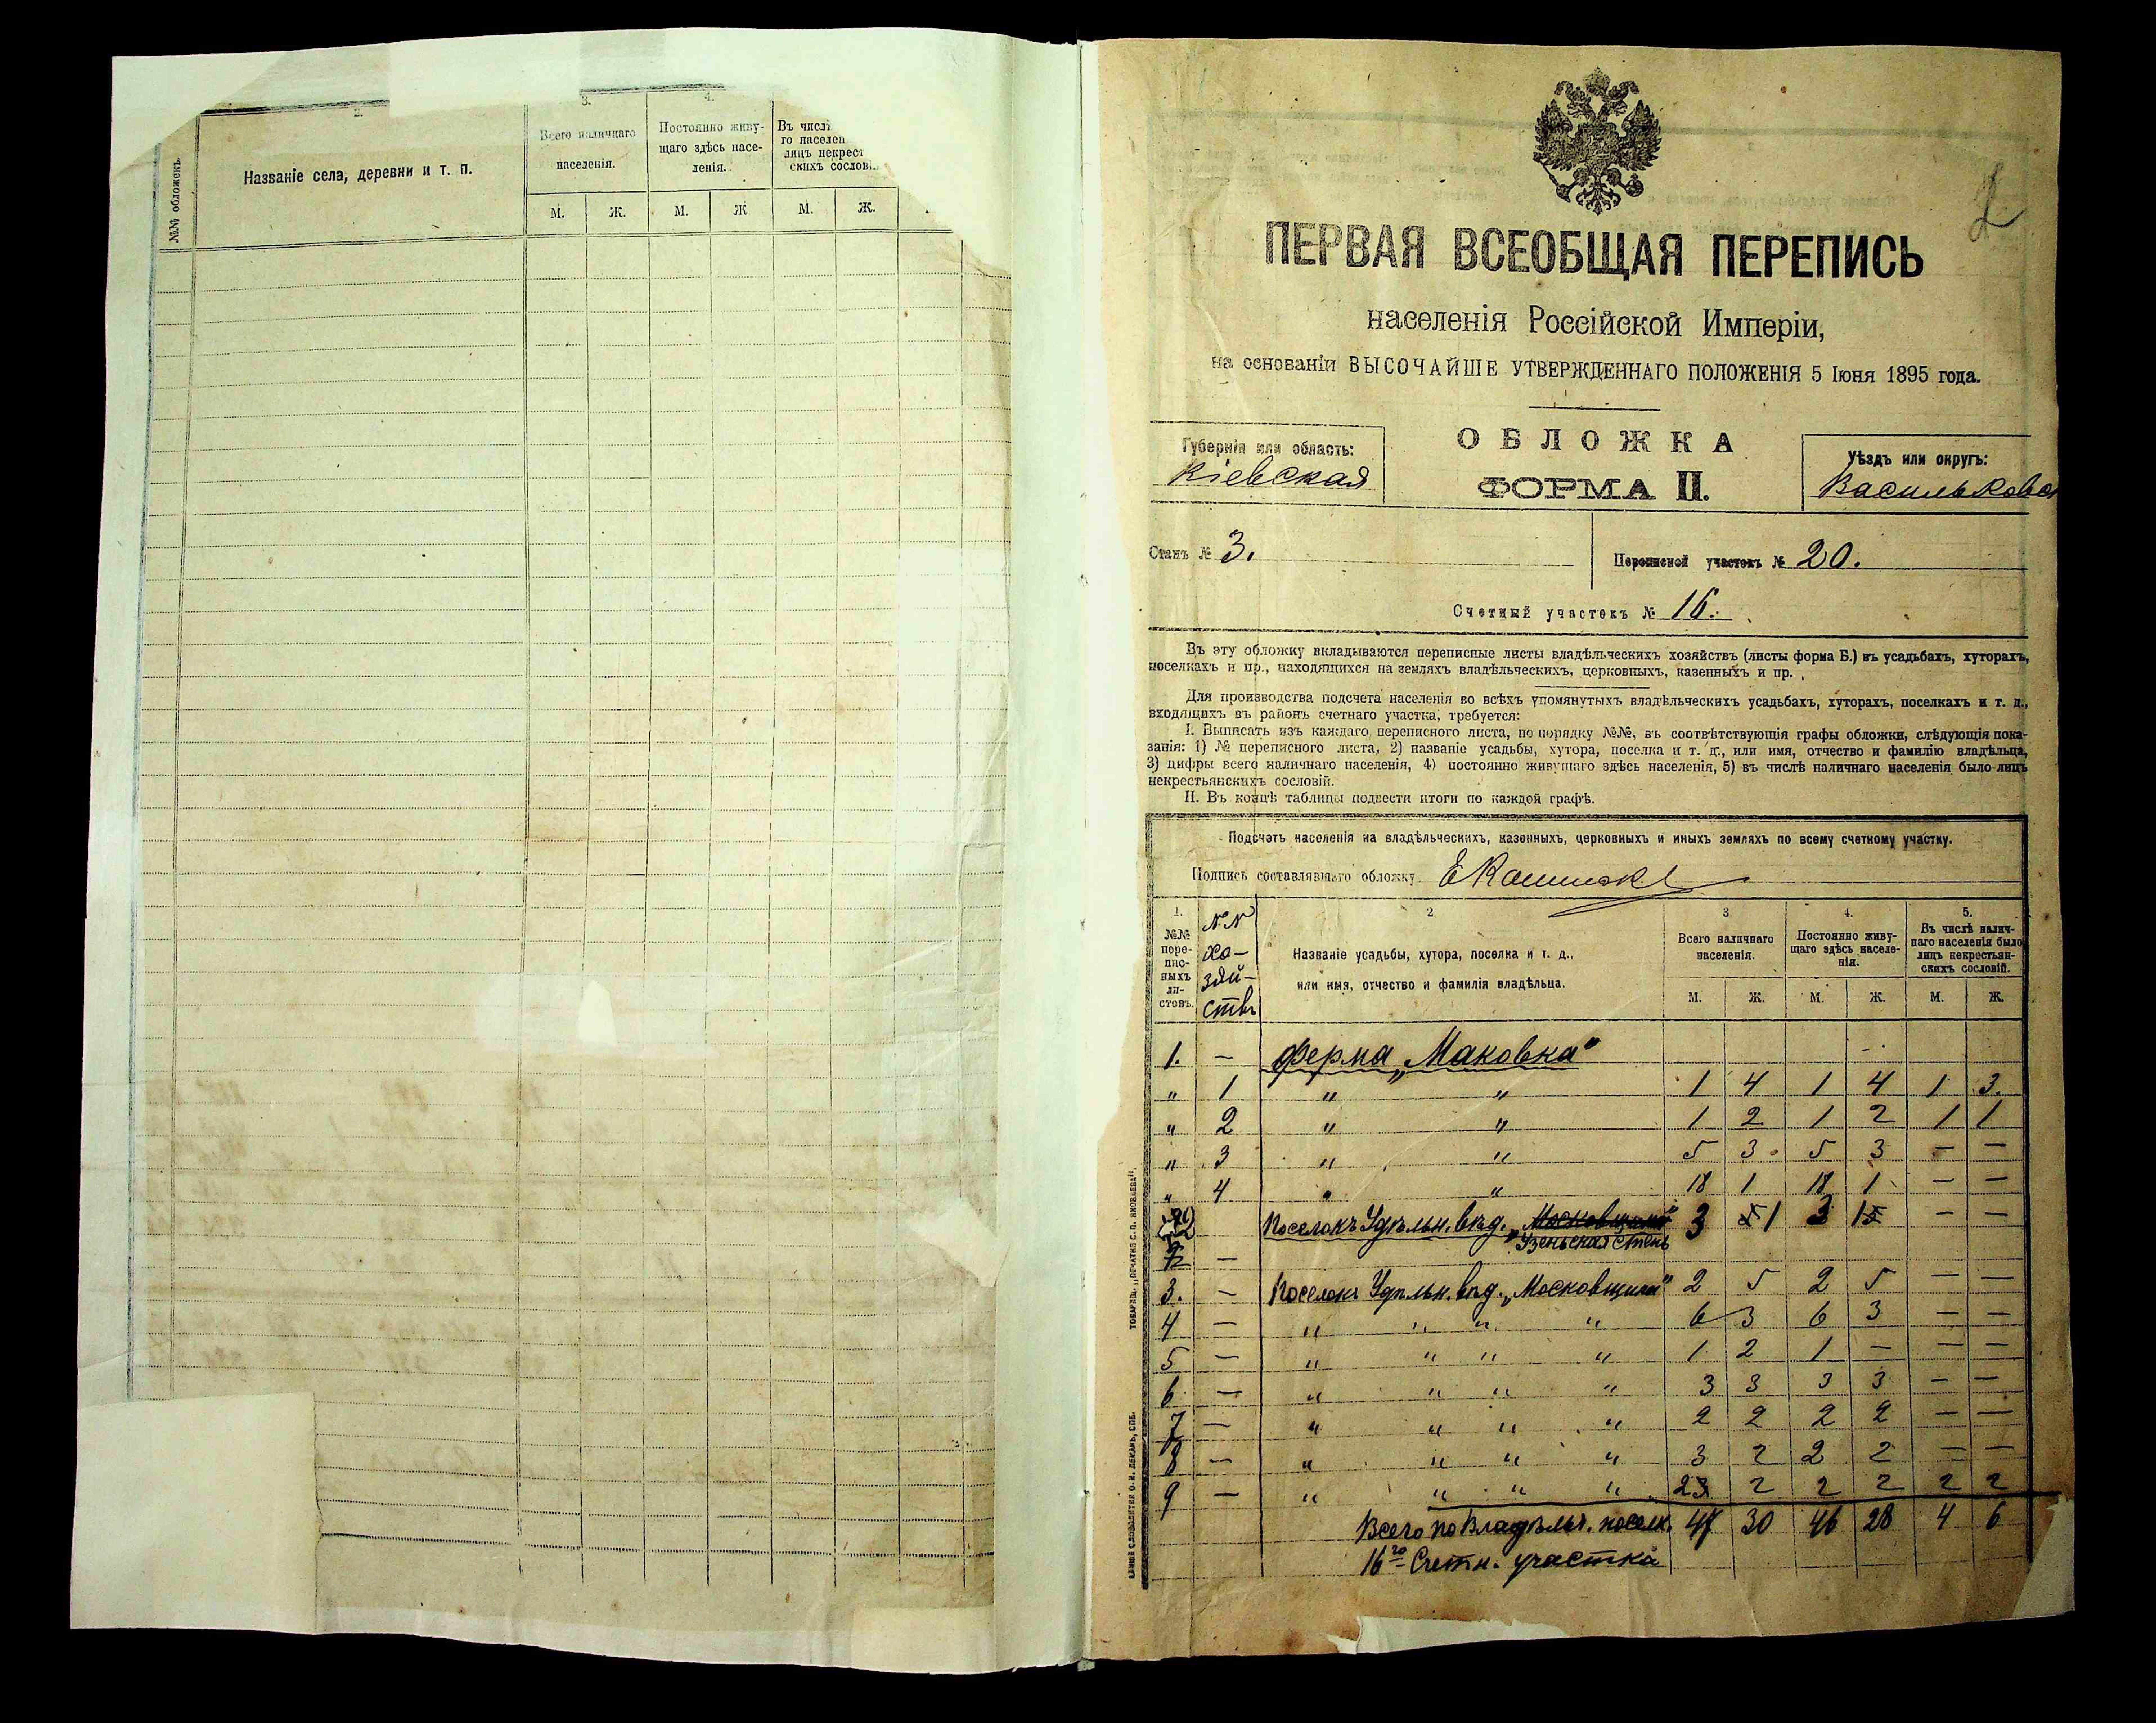 2.
3.
4.
№№ обложекъ.
Названіе села, деревни и т. п.
Всего наличнаго населенія.
Постоянно живу-
щаго здѣсь насе-
ленія.
Въ числѣ
го населен
лицъ некрест
скихъ сослові
М. Ж. М. Ж М. Ж.
2
ПЕРВАЯ ВСЕОБЩАЯ ПЕРЕПИСЬ
населенія Россійской Имперіи,
на основаніи ВЫСОЧАЙШЕ УТВЕРЖДЕННАГО ПОЛОЖЕНІЯ 5 Іюня 1895 года.
Губернія или область:
Кіевская
ОБЛОЖКА
ФОРМА II.
Уѣздъ или округъ:
Васильков
Станъ № 3.
Переписной участокъ № 20.
Счетный участокъ № 16.
Въ эту обложку вкладываются переписные листы владѣльческихъ хозяйствъ (листы форма Б.) въ усадьбахъ, хуторахъ,
поселкахъ и пр., находящихся на земляхъ владѣльческихъ, церковныхъ, казенныхъ и пр.
Для производства подсчета населенія во всѣхъ упомянутыхъ владѣльческихъ усадьбахъ, хуторахъ, поселкахъ и т. д.,
входящихъ въ районъ счетнаго участка, требуется:
I. Выписать изъ каждаго переписного листа, по порядку №№, въ соотвѣтствующія графы обложки, слѣдующія пока-
занія: 1) № переписного листа, 2) названіе усадьбы, хутора, поселка и т. д., или имя, отчество и фамилію владѣльца,
3) цифры всего наличнаго населенія, 4) постоянно живущаго здѣсь населенія, 5) въ числѣ наличнаго населенія было лицъ
некрестьянскихъ сословій.
II. Въ концѣ таблицы подвести итоги по каждой графѣ.
Подсчетъ населенія на владѣльческихъ, казенныхъ, церковныхъ и иныхъ земляхъ по всему счетному участку.
Подпись составлявшаго обложку
1.
№№
пере-
пис-
ныхъ
ли-
стовъ.
№№
хо-
зяй-
ствъ
2
Названіе усадьбы, хутора, поселка и т. д.,
или имя, отчество и фамилія владѣльца.
3
Всего наличнаго
населенія.
4.
Постоянно живу-
щаго здѣсь населе-
нія.
5.
Въ числѣ налич-
наго населенія было
лицъ некрестьян-
скихъ сословій.
М. Ж. М. Ж. М. Ж.
1. — Ферма „Маковка"
" 1 " " 1 4 1 4 1 3.
" 2 " " 1 2 1 2 1 1
" 3 " " 5 3 5 3 — —
" 4 " " 18 1 18 1 — —
2 Поселокъ Удѣльн. вѣд. „Московщина" 3 1 3 1 — —
Узеньская степь
—
3. — Поселокъ Удѣльн. вѣд. „Московщина" 2 5 2 5 — —
4 — " " " " 6 3 6 3 — —
5 — " " " " 1 2 1 — — —
6 — " " " " 3 3 3 3 — —
7 — " " " " 2 2 2 2 — —
8 — " " " " 3 2 2 2 — —
9 — " " " " 2 2 2 2 2 2
Всего по Владѣльч. поселк. 47 30 46 28 4 6
16го Счетн. участка